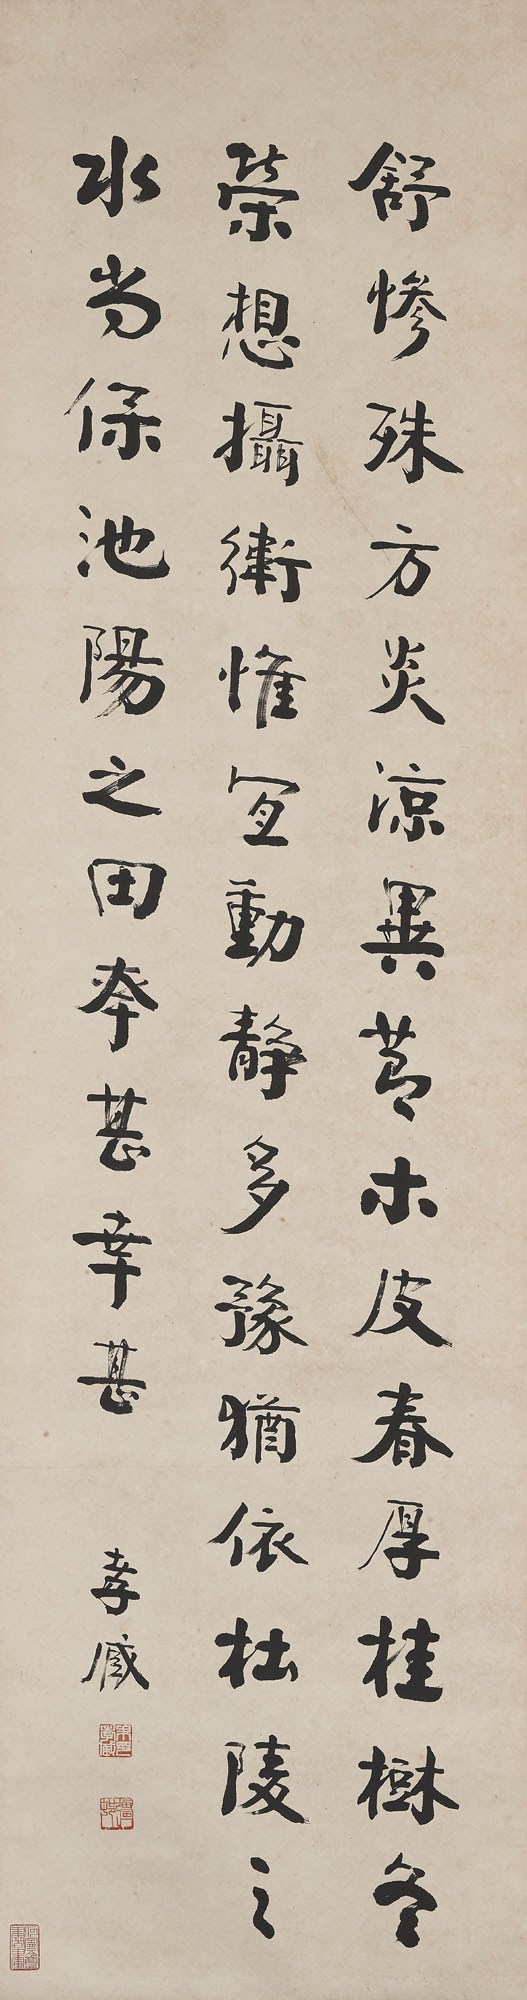 舒慘殊方炎涼異節木皮春厚桂樹冬
榮想攝衛惟宜動靜多豫猶依杜陵之
水尚保池陽之田幸甚幸甚
孝臧